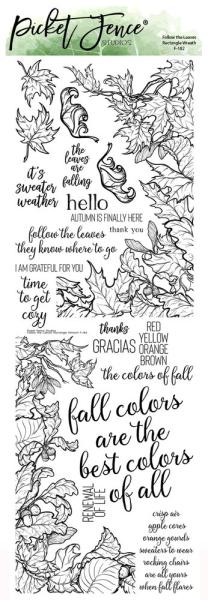 Picket Fence®
STUDIOS
Follow the Leaves
Rectangle Wreath
F-182
the
leaves
are
falling
it's
sweater
weather
hello
AUTUMN IS FINALLY HERE
follow the leaves
thank you
they know where to go
I AM GRATEFUL FOR YOU
time
to get
cozy
thanks
GRACIAS
RED
YELLOW
ORANGE
BROWN
the colors of fall
fall colors
are the
best colors
of all
RENEWAL
OF LIFE
crisp air
apple cores
orange gourds
sweaters to wear
rocking chairs
are all yours
when fall flares